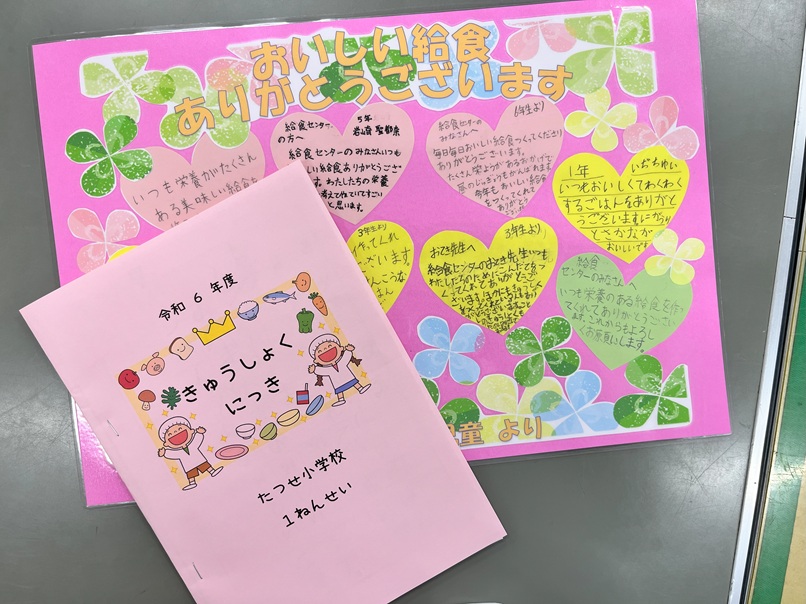 おいしい給食
ありがとうございます
いつも栄養がたくさん
ある美味しい給食を
給食センター
の方へ
5年
給食センターのみなさんいつも
しい給食ありがとうござ
す。わたしたちの栄養
考えて作ていてすごい
と思います。
6年生より
給食センターの
みなさんへ
毎日毎日おいしい給食つくってくださり
ありがとうございます。
たくさん栄ようがあるおかげで
今年もおいしい給食
をつくってくれて
ありがとう
ございます
1年
いつもおいしくてわくわく
するごはんをありがと
うございますにがうり
とさかなが
おいしいです
3年生より
作ってくれ
ざいます
3年生より
給食センターの
いつも
給食
センターのみなさんへ
いつも栄養のある給食を作っ
てくれてありがとうござい
ます。これからもよろし
くお願いします。
童 より
令和 6 年度
きゅうしょく
にっき
たつせ小学校
1ねんせい